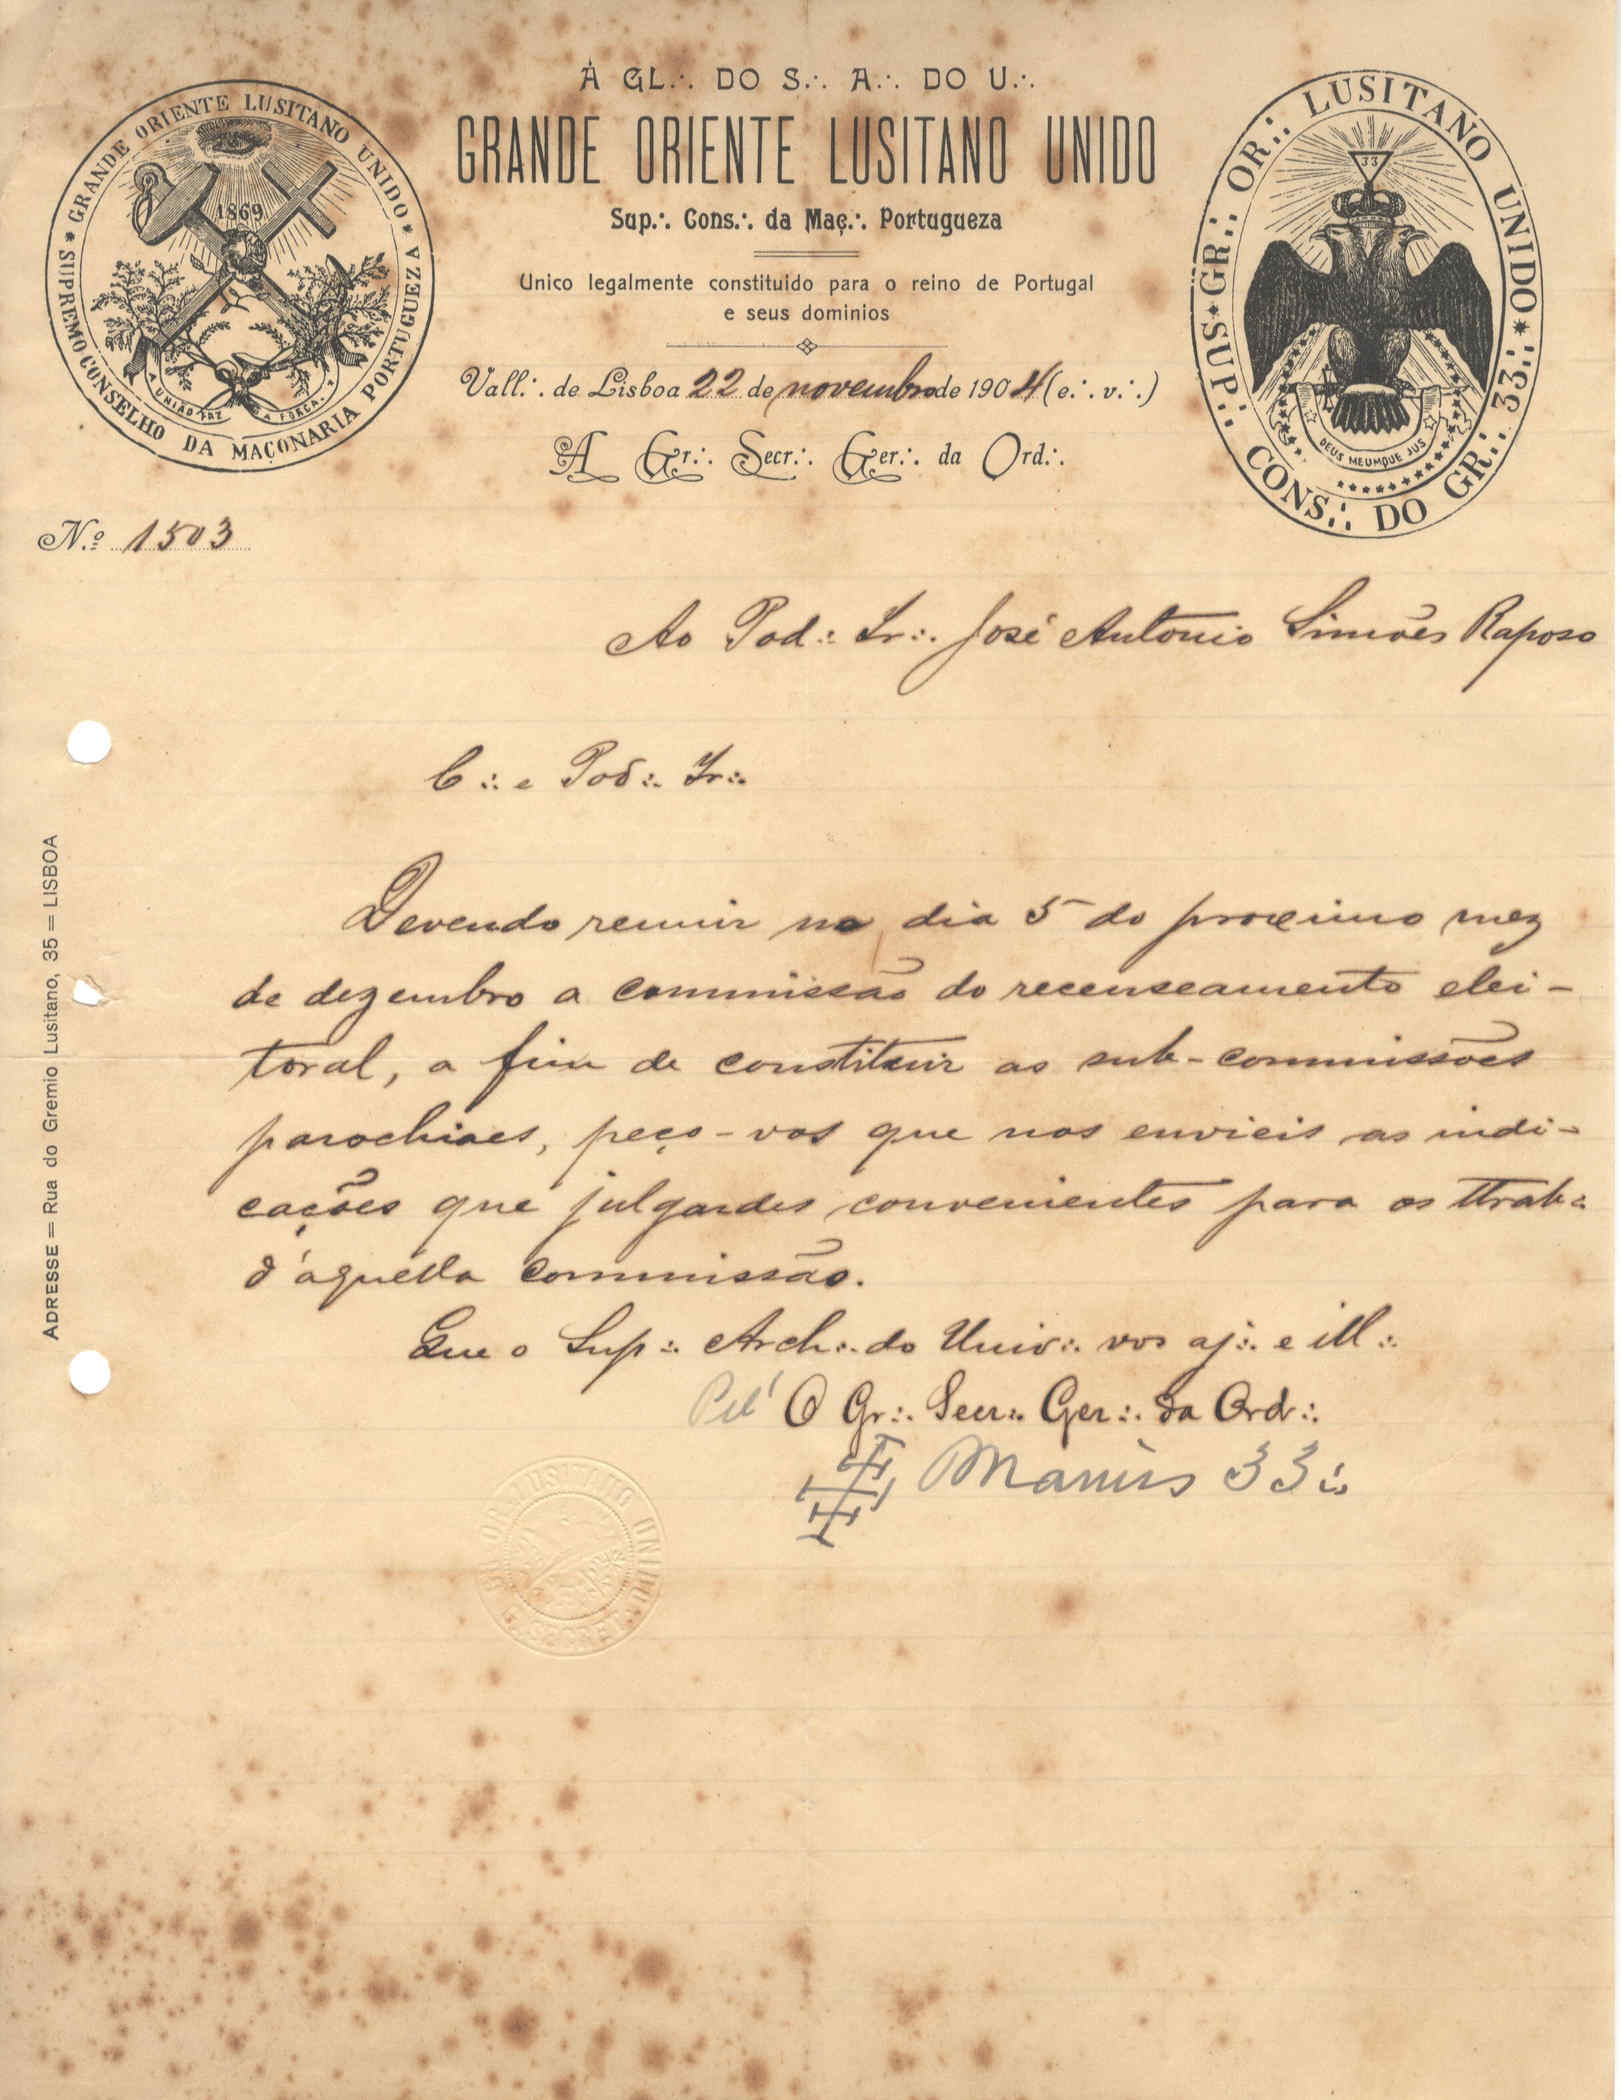 À GL.·. DO S.·. A.·. DO U.·.
GRANDE ORIENTE LUSITANO UNIDO
Sup.·. Cons.·. da Maç.·. Portugueza
Unico legalmente constituido para o reino de Portugal
e seus dominios
Vall.·. de Lisboa 22 de novembro de 1904 (e.·. v.·.)
A Gr.·. Secr.·. Ger.·. da Ord.·.
* GRANDE ORIENTE LUSITANO UNIDO * SUPREMO CONSELHO DA MAÇONARIA PORTUGUEZA
1869
A UNIÃO FAZ A FORÇA.
SUP.·. GR.·. OR.·. LUSITANO UNIDO * CONS.·. DO GR.·. 33.·.
33
DEUS MEUMQUE JUS
N.º 1503
Ao Pod.·. Ir.·. José Antonio Simões Raposo
C.·. e Pod.·. Ir.·.
Devendo reunir no dia 5 do proximo mez
de dezembro a commissão do recenseamento elei-
toral, a fim de constituir as sub-commissões
parochiaes, peço-vos que nos envieis as indi-
cações que julgardes convenientes para os ttrab.·.
d'aquella commissão.
Que o Sup.·. Arch.·. do Univ.·. vos aj.·. e ill.·.
Pel' O Gr.·. Secr.·. Ger.·. da Ord.·.
Marius 33.·.
OR. LUSITANO UNIDO
SECRET.
ADRESSE = Rua do Gremio Lusitano, 35 = LISBOA